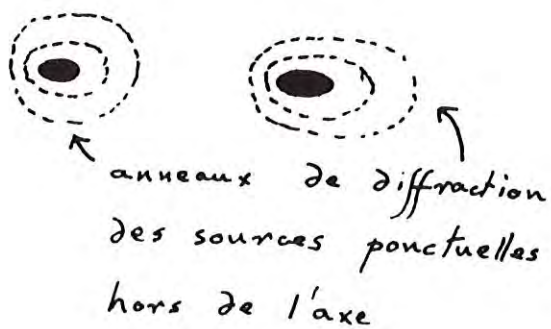 anneaux de diffraction
des sources ponctuelles
hors de l'axe